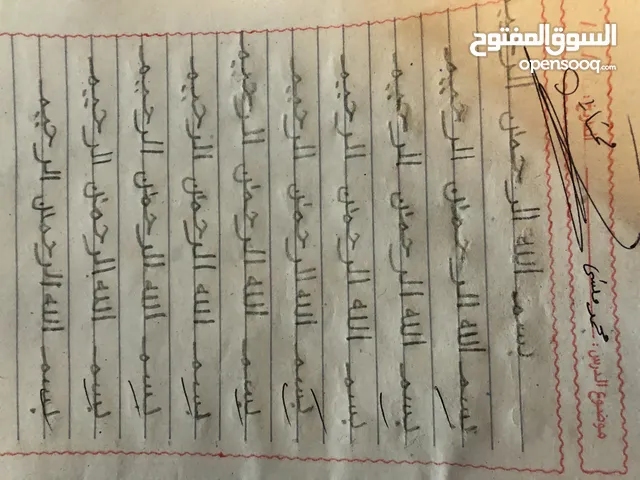 السوق المفتوح
opensooq
موضوع الدرس: محمد
بسم الله الرحمن
بسم الله الرحمن الرحيم
بسم الله الرحمن الرحيم
بسم الله الرحمن الرحيم
بسم الله الرحمن الرحيم
بسم الله الرحمن الرحيم
بسم الله الرحمن الرحيم
بسم الله الرحمن الرحيم
بسم الله الرحمن الرحيم
بسم الله الرحمن الرحيم